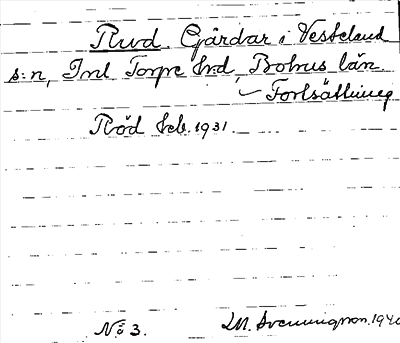 Rud. Gårdar i Vesteland
s:n, Inl Torpe Hrd, Bohus län.
Fortsättning
Röd Jeb. 1931.
No 3.
M. Svenningson. 1940